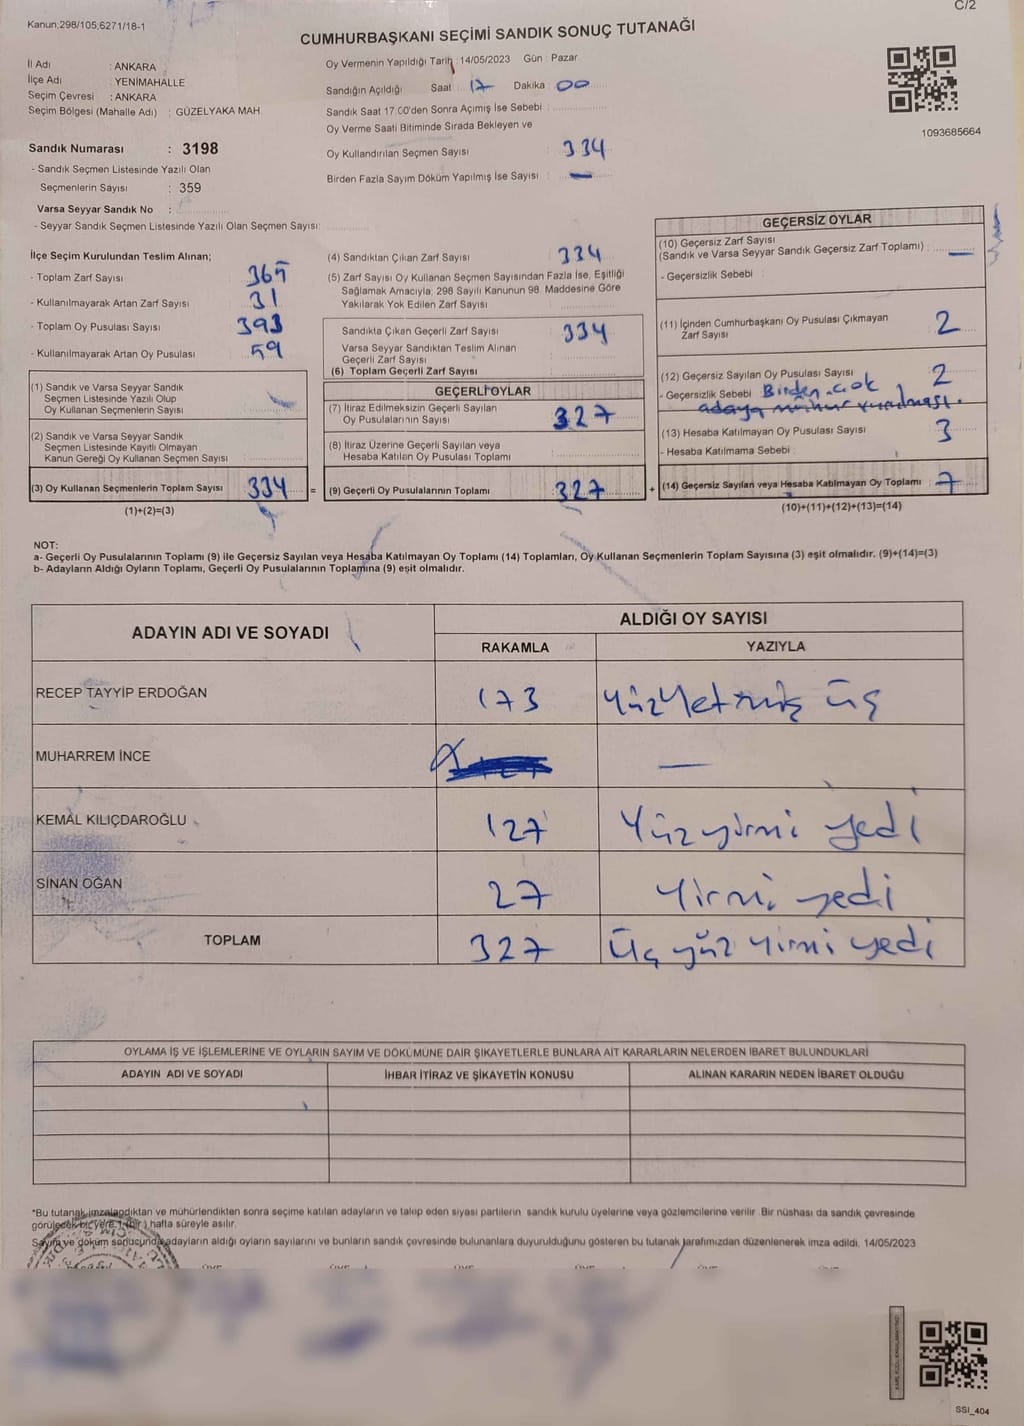 C/2
Kanun.298/105,6271/18-1
CUMHURBAŞKANI SEÇİMİ SANDIK SONUÇ TUTANAĞI
İl Adı : ANKARA
İlçe Adı : YENİMAHALLE
Seçim Çevresi : ANKARA
Seçim Bölgesi (Mahalle Adı) : GÜZELYAKA MAH.
Oy Vermenin Yapıldığı Tarih : 14/05/2023 Gün : Pazar
Sandığın Açıldığı Saat : 17 Dakika : 00
Sandık Saat 17:00'den Sonra Açımış İse Sebebi :
Oy Verme Saati Bitiminde Sırada Bekleyen ve
Oy Kullandırılan Seçmen Sayısı : 334
Birden Fazla Sayım Döküm Yapılmış İse Sayısı : —
1093685664
Sandık Numarası : 3198
- Sandık Seçmen Listesinde Yazılı Olan
Seçmenlerin Sayısı : 359
Varsa Seyyar Sandık No :
- Seyyar Sandık Seçmen Listesinde Yazılı Olan Seçmen Sayısı:
İlçe Seçim Kurulundan Teslim Alınan;
- Toplam Zarf Sayısı : 365
- Kullanılmayarak Artan Zarf Sayısı : 31
- Toplam Oy Pusulası Sayısı : 393
- Kullanılmayarak Artan Oy Pusulası : 59
(1) Sandık ve Varsa Seyyar Sandık
Seçmen Listesinde Yazılı Olup
Oy Kullanan Seçmenlerin Sayısı :
(2) Sandık ve Varsa Seyyar Sandık
Seçmen Listesinde Kayıtlı Olmayan
Kanun Gereği Oy Kullanan Seçmen Sayısı :
(3) Oy Kullanan Seçmenlerin Toplam Sayısı : 334 =
(1)+(2)=(3)
(4) Sandıktan Çıkan Zarf Sayısı : 334
(5) Zarf Sayısı Oy Kullanan Seçmen Sayısından Fazla İse, Eşitliği
Sağlamak Amacıyla; 298 Sayılı Kanunun 98. Maddesine Göre
Yakılarak Yok Edilen Zarf Sayısı :
Sandıkta Çıkan Geçerli Zarf Sayısı : 334
Varsa Seyyar Sandıktan Teslim Alınan
Geçerli Zarf Sayısı :
(6) Toplam Geçerli Zarf Sayısı :
GEÇERLİ OYLAR
(7) İtiraz Edilmeksizin Geçerli Sayılan
Oy Pusulalarının Sayısı : 327
(8) İtiraz Üzerine Geçerli Sayılan veya
Hesaba Katılan Oy Pusulası Toplamı :
(9) Geçerli Oy Pusulalarının Toplamı : 327 +
GEÇERSİZ OYLAR
(10) Geçersiz Zarf Sayısı
(Sandık ve Varsa Seyyar Sandık Geçersiz Zarf Toplamı) : —
- Geçersizlik Sebebi :
(11) İçinden Cumhurbaşkanı Oy Pusulası Çıkmayan
Zarf Sayısı : 2
(12) Geçersiz Sayılan Oy Pusulası Sayısı : 2
- Geçersizlik Sebebi : Birden çok
adaya mühür vurulması.
(13) Hesaba Katılmayan Oy Pusulası Sayısı : 3
- Hesaba Katılmama Sebebi :
(14) Geçersiz Sayılan veya Hesaba Katılmayan Oy Toplamı : 7
(10)+(11)+(12)+(13)=(14)
NOT:
a- Geçerli Oy Pusulalarının Toplamı (9) ile Geçersiz Sayılan veya Hesaba Katılmayan Oy Toplamı (14) Toplamları, Oy Kullanan Seçmenlerin Toplam Sayısına (3) eşit olmalıdır. (9)+(14)=(3)
b- Adayların Aldığı Oyların Toplamı, Geçerli Oy Pusulalarının Toplamına (9) eşit olmalıdır.
ADAYIN ADI VE SOYADI
ALDIĞI OY SAYISI
RAKAMLA YAZIYLA
RECEP TAYYİP ERDOĞAN 173 Yüzyetmiş üç
MUHARREM İNCE —
KEMAL KILIÇDAROĞLU 127 Yüzyirmi yedi
SİNAN OĞAN 27 Yirmi yedi
TOPLAM 327 Üç yüz yirmi yedi
OYLAMA İŞ VE İŞLEMLERİNE VE OYLARIN SAYIM VE DÖKÜMÜNE DAİR ŞİKAYETLERLE BUNLARA AİT KARARLARIN NELERDEN İBARET BULUNDUKLARI
ADAYIN ADI VE SOYADI İHBAR İTİRAZ VE ŞİKAYETİN KONUSU ALINAN KARARIN NEDEN İBARET OLDUĞU
*Bu tutanak imzalandıktan ve mühürlendikten sonra seçime katılan adayların ve talep eden siyasi partilerin sandık kurulu üyelerine veya gözlemcilerine verilir. Bir nüshası da sandık çevresinde
görülecek bir yere 1 (bir) hafta süreyle asılır.
Sayım ve döküm sonucunda adayların aldığı oyların sayılarını ve bunların sandık çevresinde bulunanlara duyurulduğunu gösteren bu tutanak tarafımızdan düzenlenerek imza edildi. 14/05/2023
SSI_404